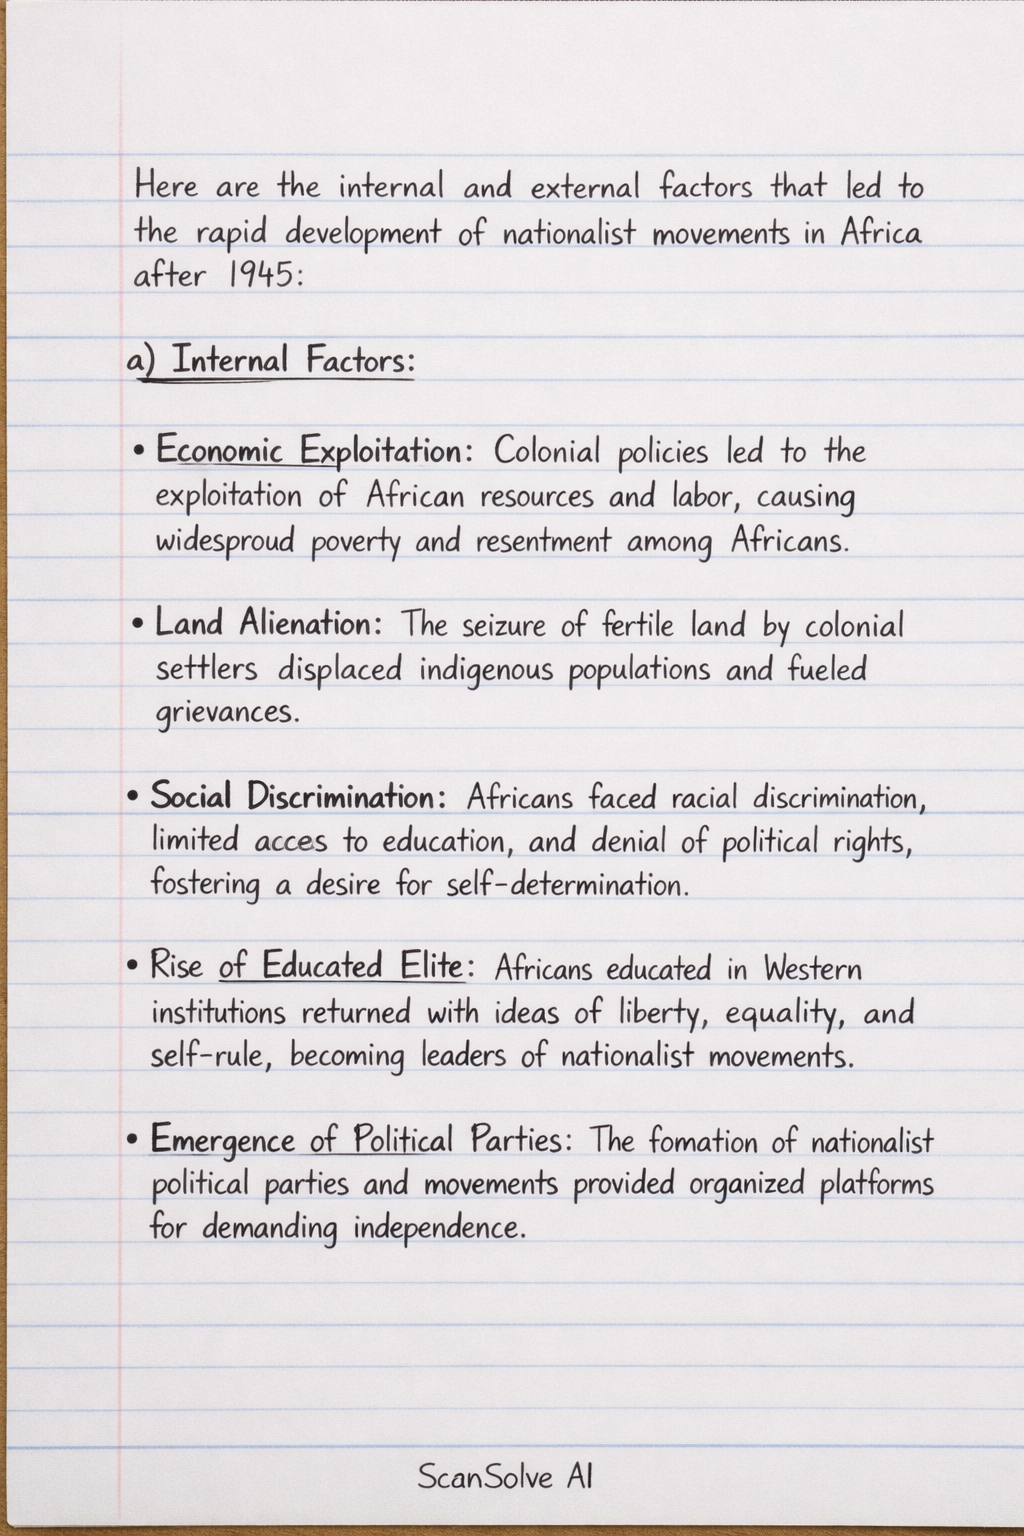 Here are the internal and external factors that led to
the rapid development of nationalist movements in Africa
after 1945:
a) Internal Factors:
• Economic Exploitation: Colonial policies led to the
exploitation of African resources and labor, causing
widesproud poverty and resentment among Africans.
• Land Alienation: The seizure of fertile land by colonial
settlers displaced indigenous populations and fueled
grievances.
• Social Discrimination: Africans faced racial discrimination,
limited acces to education, and denial of political rights,
fostering a desire for self-determination.
• Rise of Educated Elite: Africans educated in Western
institutions returned with ideas of liberty, equality, and
self-rule, becoming leaders of nationalist movements.
• Emergence of Political Parties: The fomation of nationalist
political parties and movements provided organized platforms
for demanding independence.
ScanSolve AI